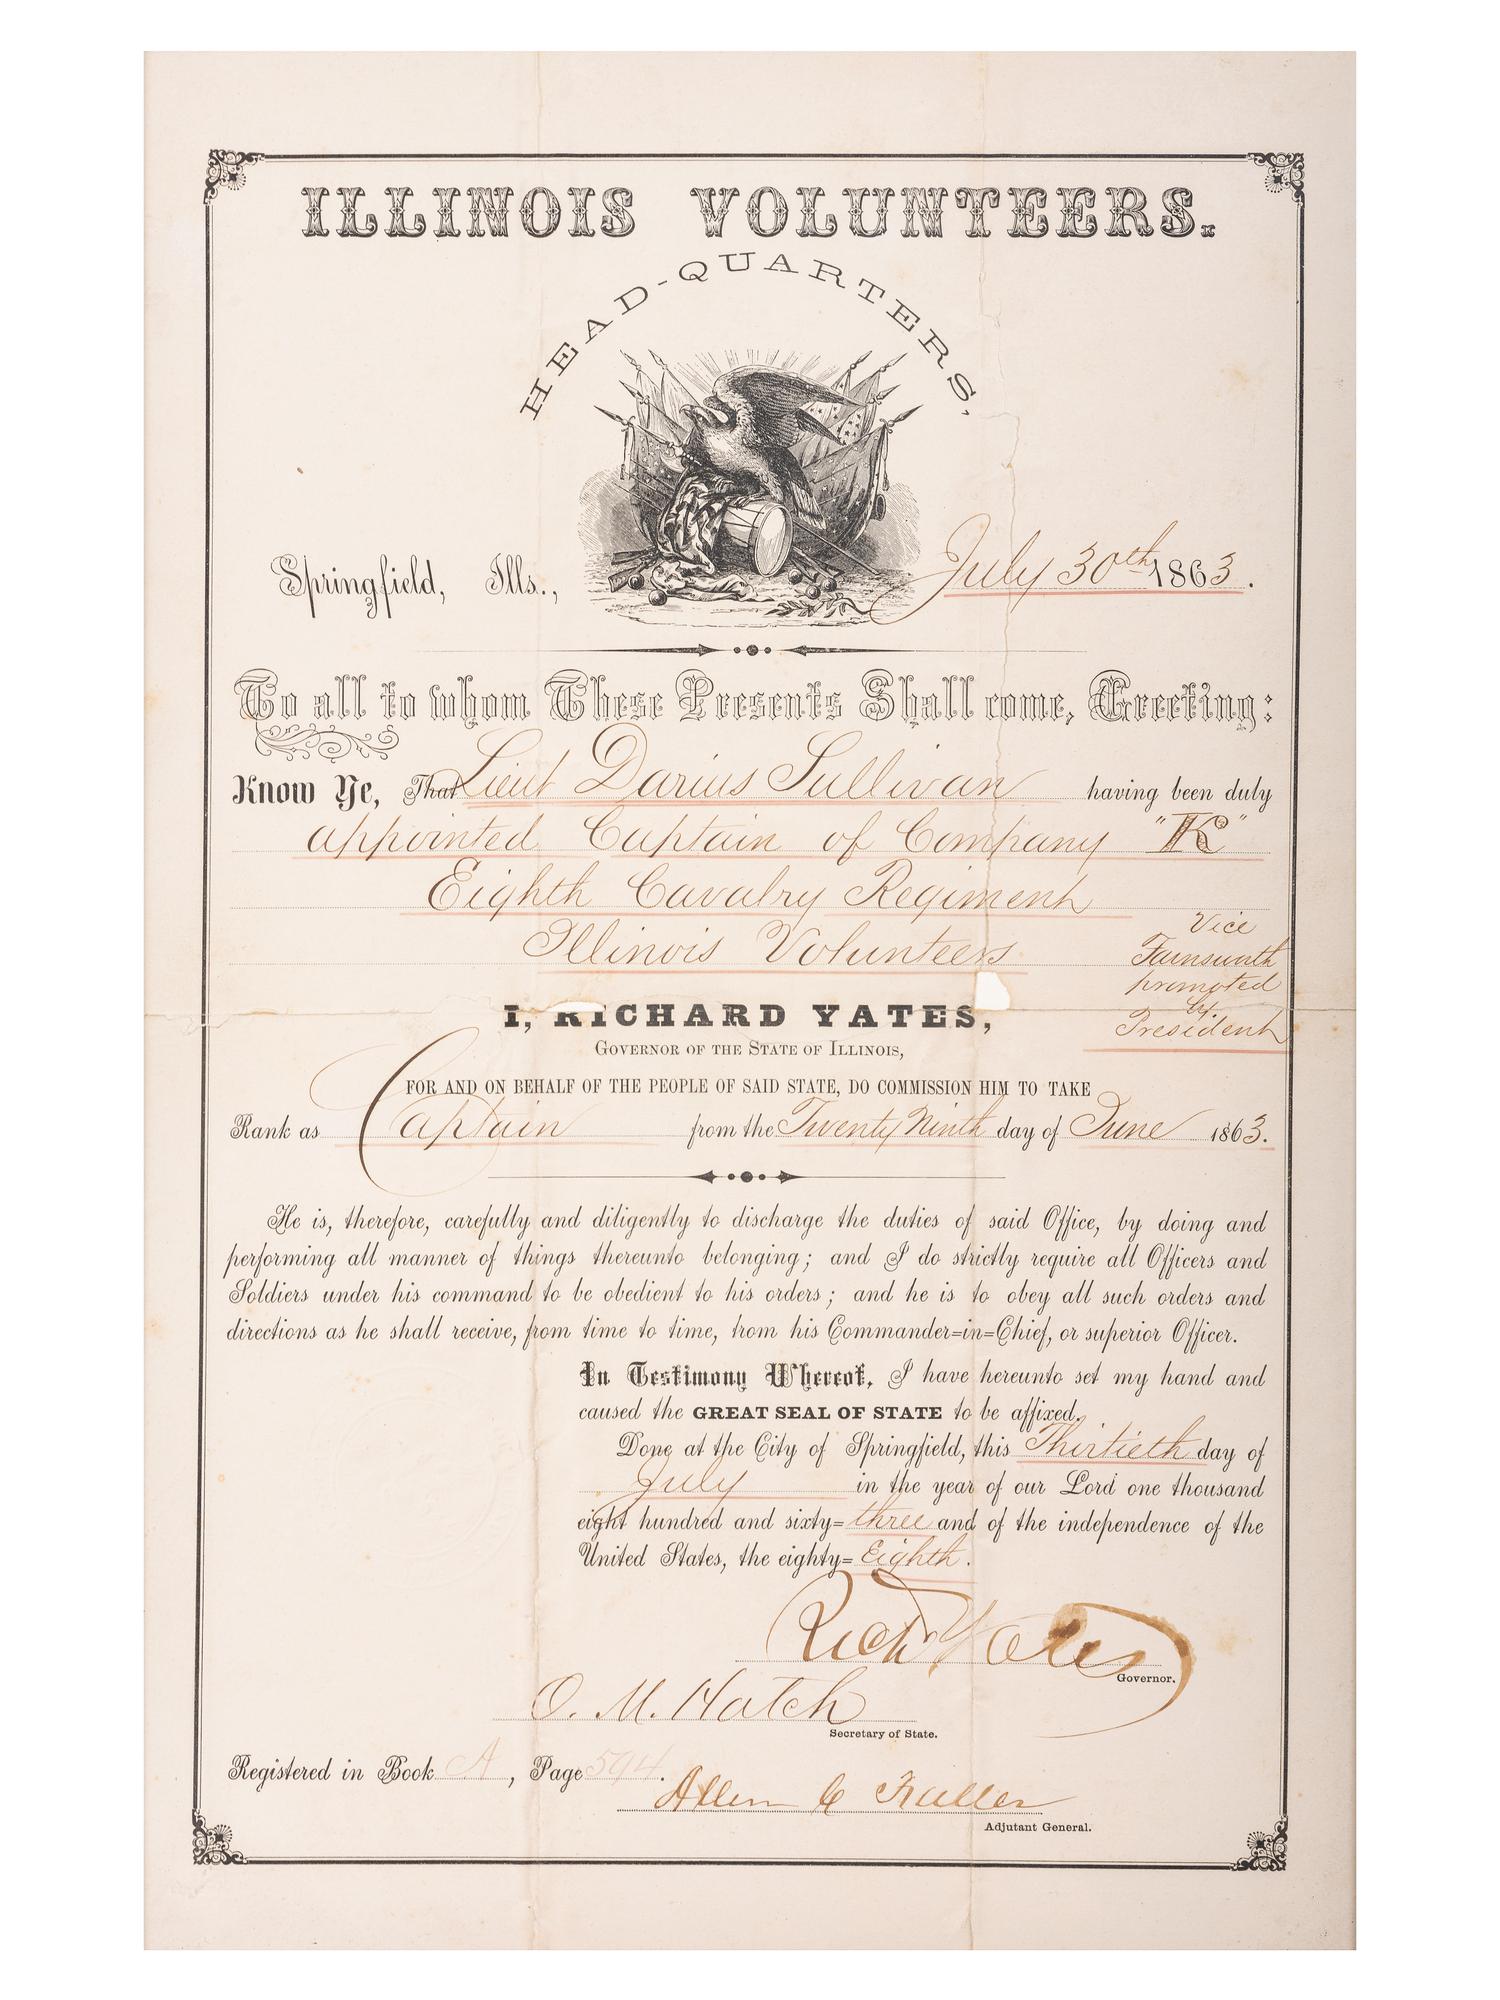 ILLINOIS VOLUNTEERS.
HEAD-QUARTERS,
Springfield, Ills., July 30th 1863.
To all to whom These Presents Shall come, Greeting:
Know Ye, That Lieut Darius Sullivan having been duly
appointed Captain of Company "K"
Eighth Cavalry Regiment
Illinois Volunteers
Vice
Farnsworth
promoted
by
President
I, RICHARD YATES,
GOVERNOR OF THE STATE OF ILLINOIS,
FOR AND ON BEHALF OF THE PEOPLE OF SAID STATE, DO COMMISSION HIM TO TAKE
Rank as Captain from the Twenty Ninth day of June 1863.
He is, therefore, carefully and diligently to discharge the duties of said Office, by doing and
performing all manner of things thereunto belonging; and I do strictly require all Officers and
Soldiers under his command to be obedient to his orders; and he is to obey all such orders and
directions as he shall receive, from time to time, from his Commander=in=Chief, or superior Officer.
In Testimony Whereof, I have hereunto set my hand and
caused the GREAT SEAL OF STATE to be affixed.
Done at the City of Springfield, this Thirtieth day of
July in the year of our Lord one thousand
eight hundred and sixty=three and of the independence of the
United States, the eighty=Eighth.
Rich Yates
Governor.
O. M. Hatch
Secretary of State.
Registered in Book A, Page 594.
Allen C Fuller
Adjutant General.